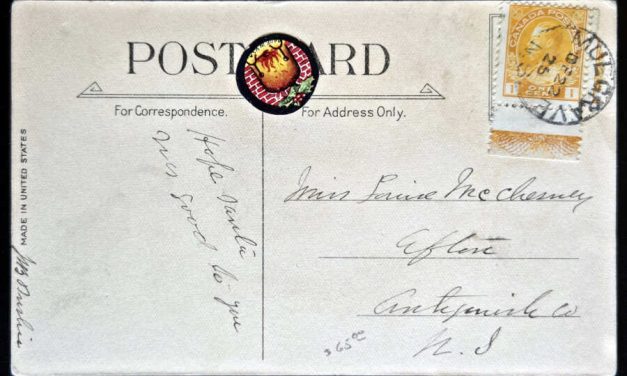 POST CARD
For Correspondence.
For Address Only.
CANADA POSTAGE
1
MULGRAVE
DE 22
25
N.S
Hope Santa
was good to you
MADE IN UNITED STATES
Miss Louise McChesney
Afton
Antigonish Co
N. S
365.00